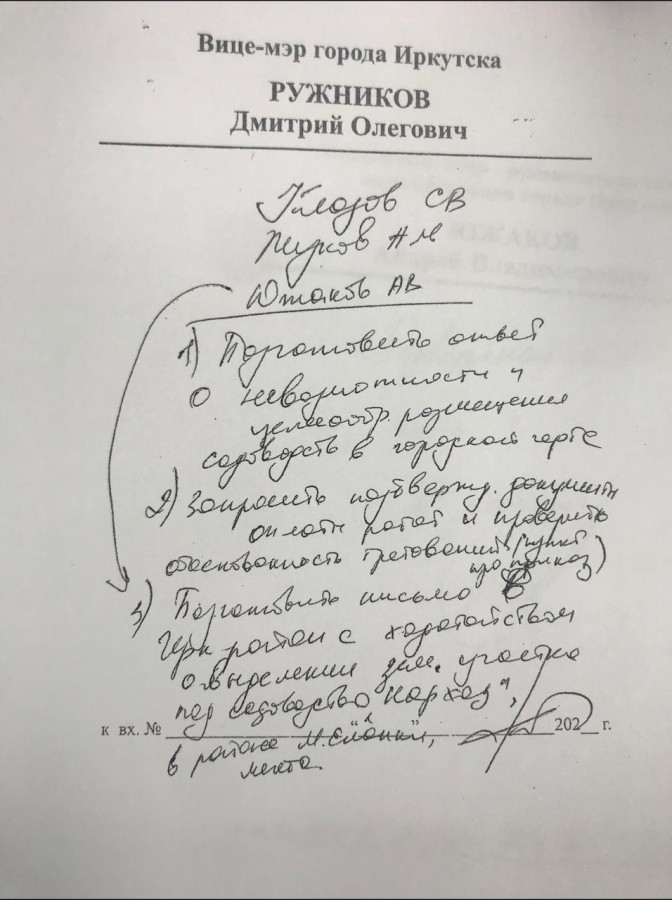 Вице-мэр города Иркутска
РУЖНИКОВ
Дмитрий Олегович
СВ
АМ
Южаков АВ
1) Подготовить ответ
о невозможности и
целесообр. размещения
садоводств в городской черте
2) Запросить подтвержд. документы
оплаты работ и проверить
обоснованность требований (пункт
про проезд)
3) Подготовить письмо в
Ирк район с ходатайством
о выделении зем. участка
под садоводство "Нархоз",
к вх. № 202 г.
в районе м.